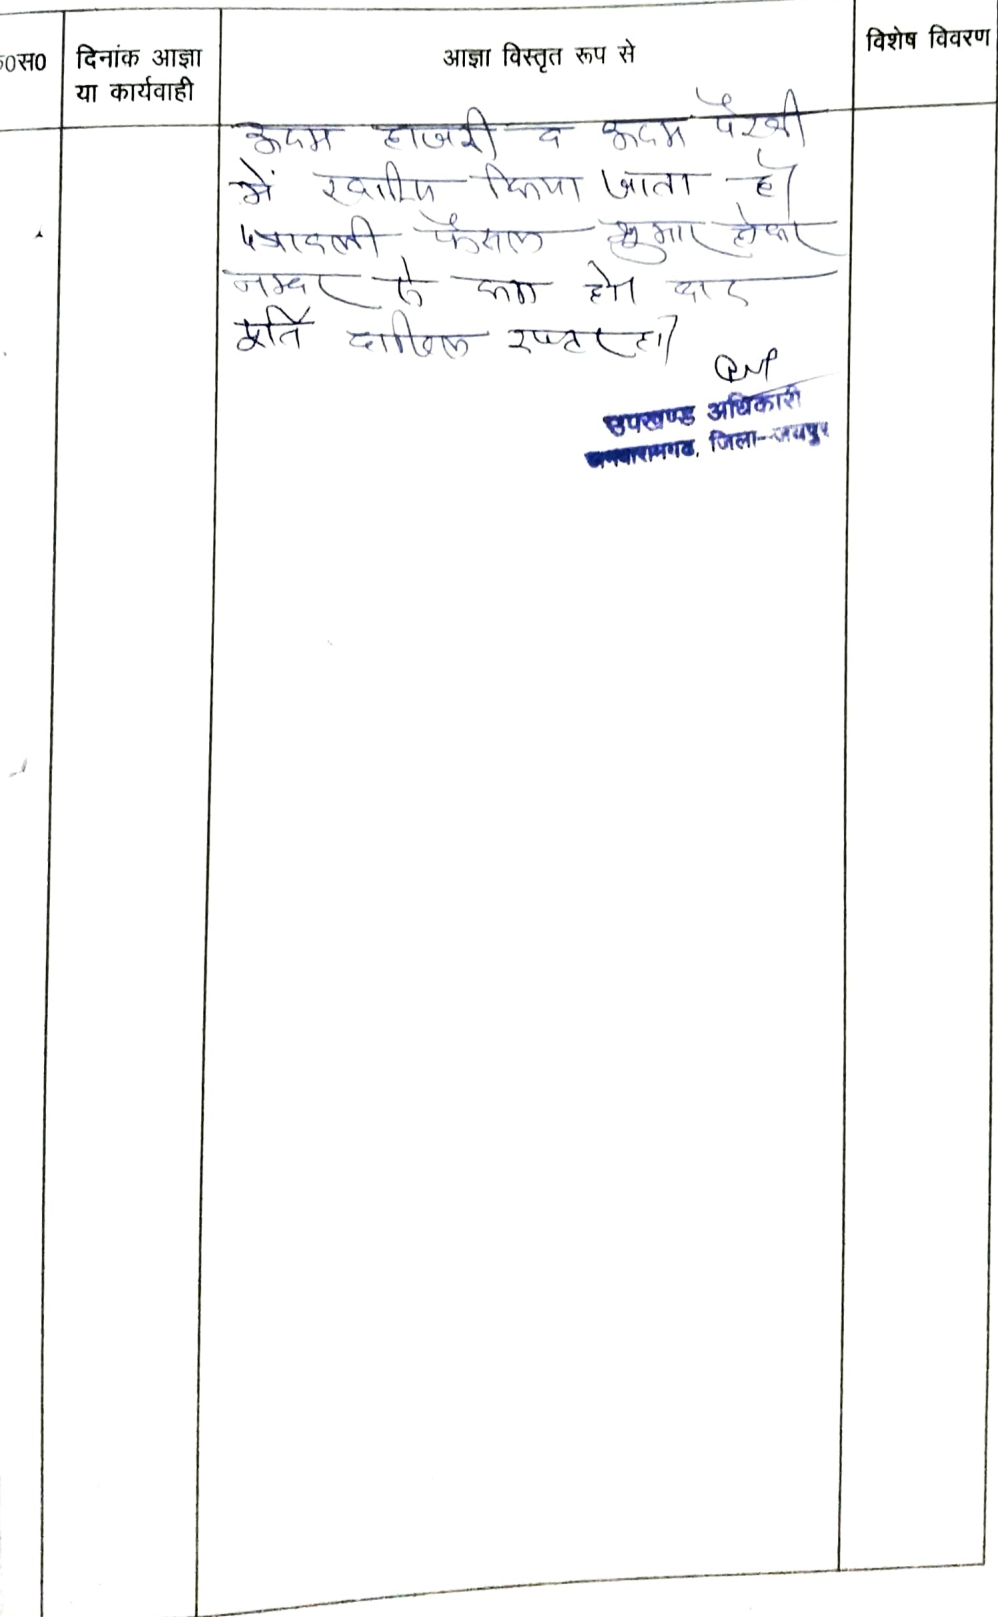 क्र०स०
दिनांक आज्ञा
या कार्यवाही
आज्ञा विस्तृत रूप से
विशेष विवरण
अदम हाजरी व अदम पैरवी
में खारीज किया जाता है।
पत्रावली फैसल शुमार होकर
नम्बर से कम हो। बाद
पूर्ति दाखिल दफ्तर हो।
उपखण्ड अधिकारी
जमवारामगढ, जिला-जयपुर